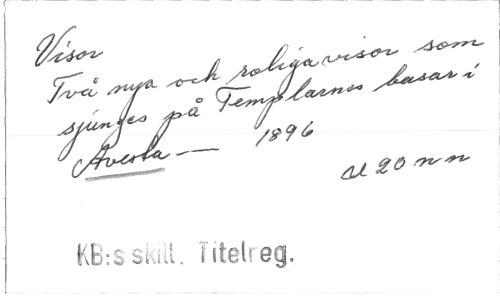 Visor
Två nya och roliga visor som
sjunges på Templarnes basar i
Avesta — 1896
U 20 n n
KB:s skill. Titelreg.